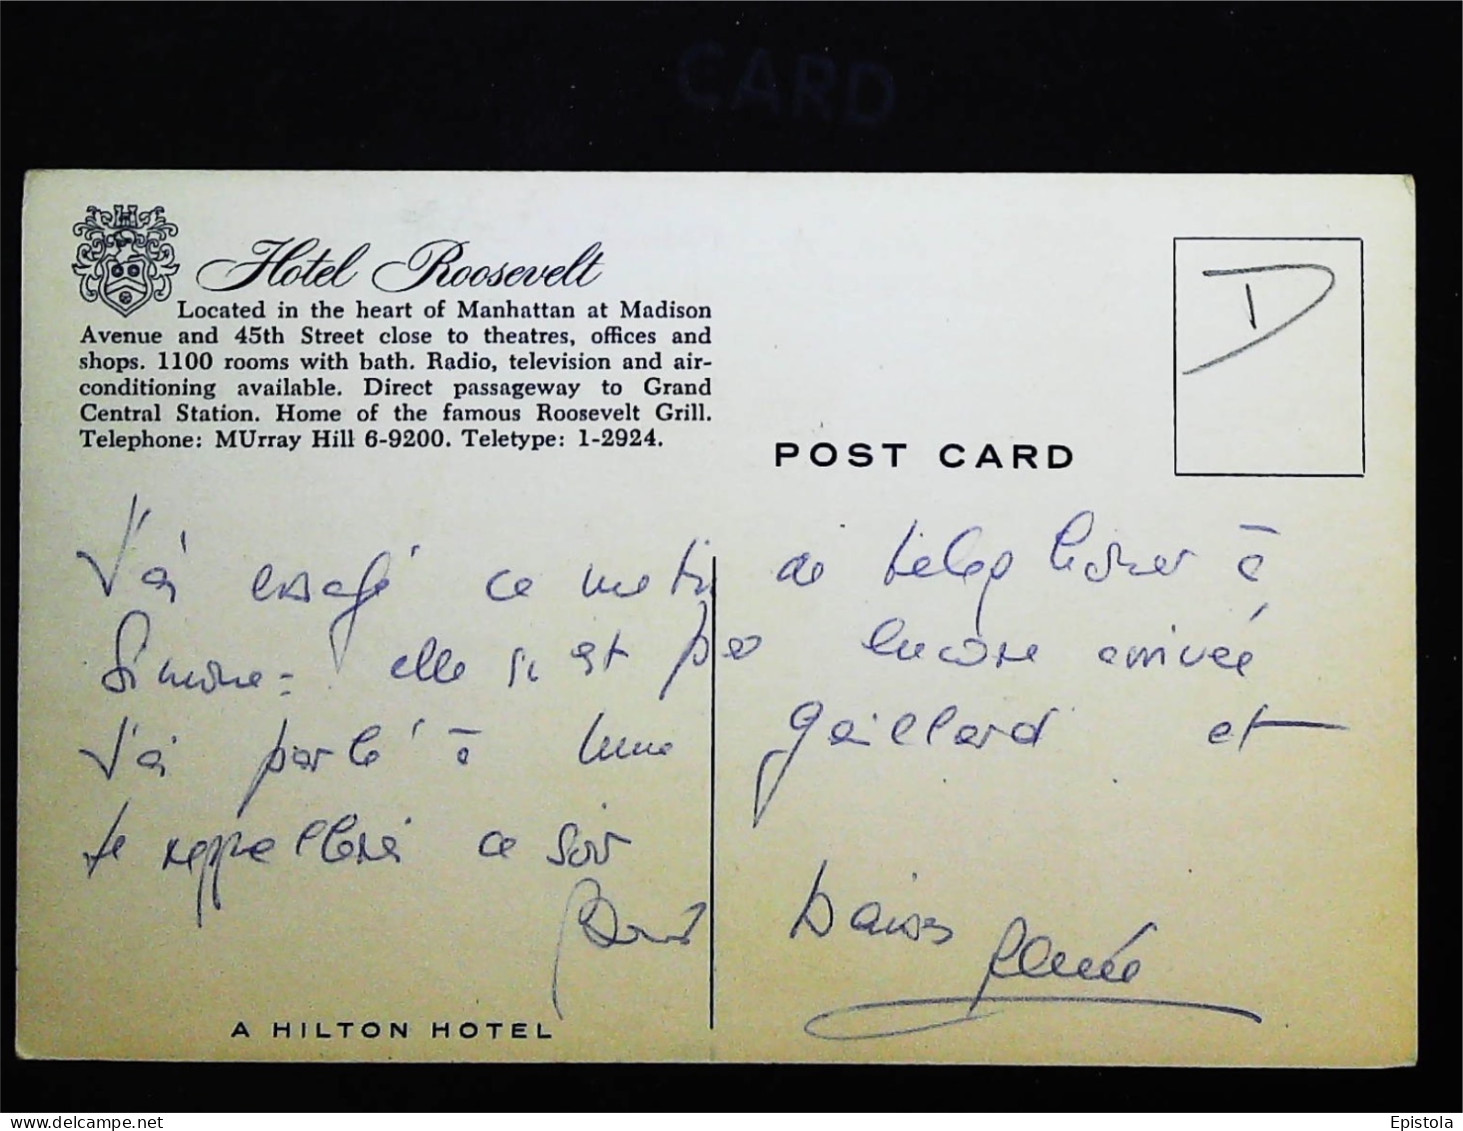 CARD
Hotel Roosevelt
Located in the heart of Manhattan at Madison
Avenue and 45th Street close to theatres, offices and
shops. 1100 rooms with bath. Radio, television and air-
conditioning available. Direct passageway to Grand
Central Station. Home of the famous Roosevelt Grill.
Telephone: MUrray Hill 6-9200. Teletype: 1-2924.
POST CARD
J'ai essayé ce matin de telephoner à
Simone = elle n'est pas encore arrivée
J'ai parlé à Mme Gaillard et
te rappellerai ce soir
Baisers
Renée
A HILTON HOTEL
Epistola